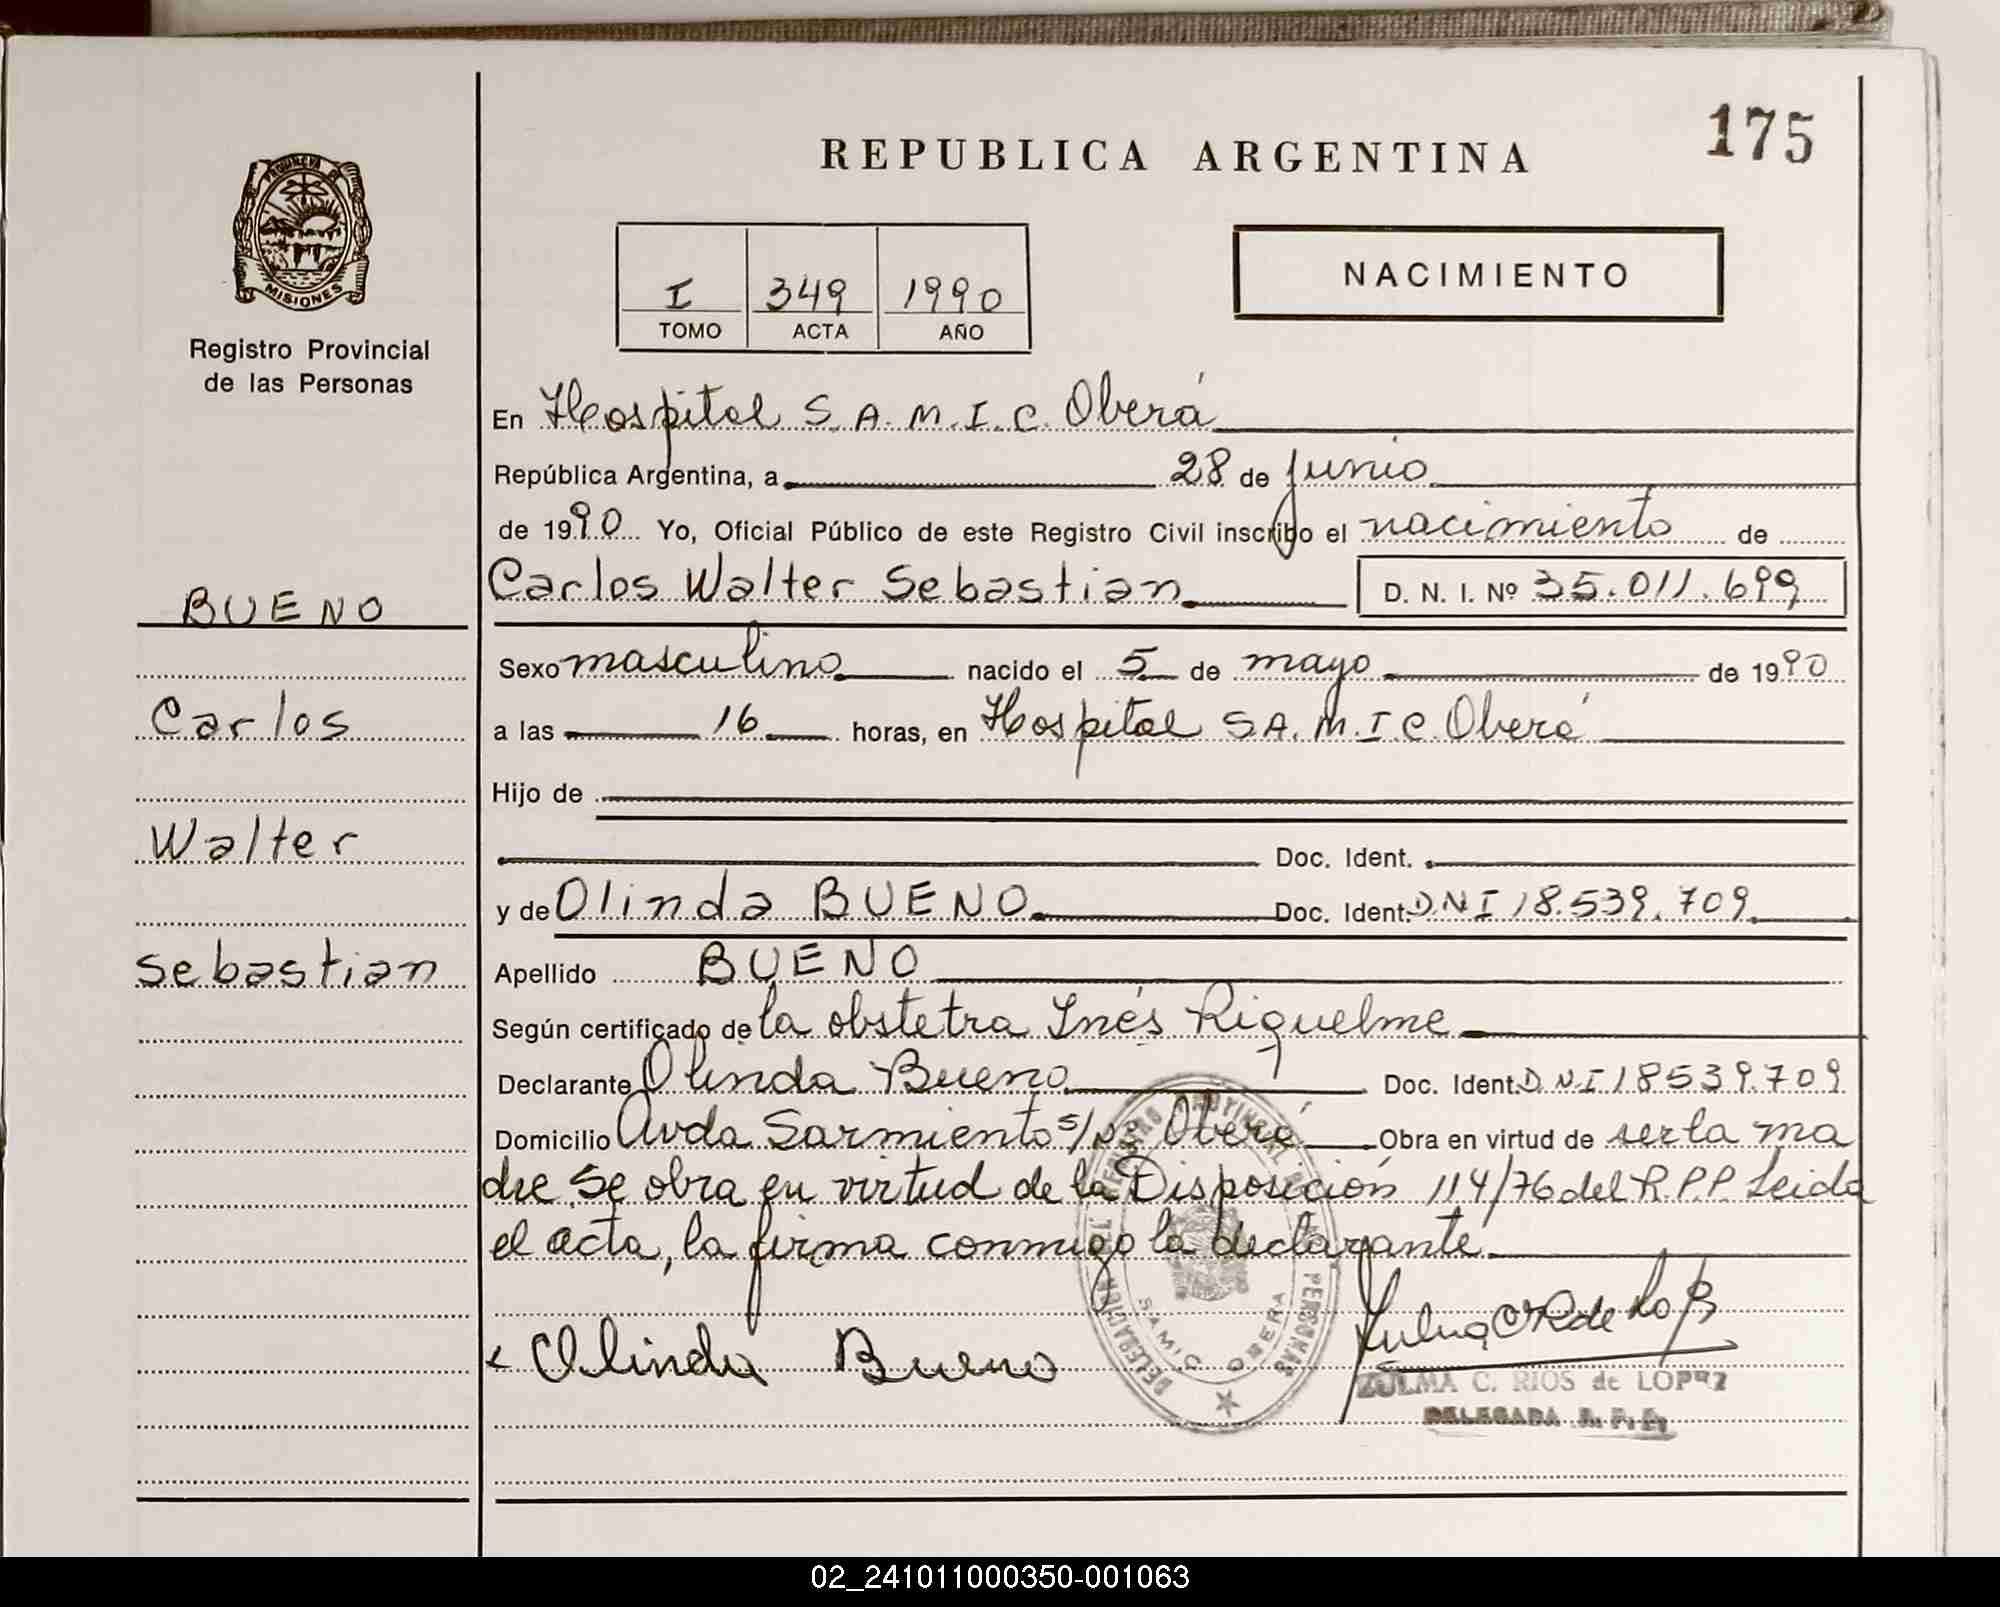 175
REPUBLICA ARGENTINA
PROVINCIA DE
MISIONES
Registro Provincial
de las Personas
I 349 1990
TOMO ACTA AÑO
NACIMIENTO
En Hospital S.A.M.I.C. Oberá
República Argentina, a 28 de junio
de 1990 Yo, Oficial Público de este Registro Civil inscribo el nacimiento de
Carlos Walter Sebastian D. N. I. Nº 35.011.699
BUENO
Carlos
Walter
Sebastian
Sexo masculino nacido el 5 de mayo de 1990
a las 16 horas, en Hospital S.A.M.I.C. Oberá
Hijo de
Doc. Ident.
y de Olinda BUENO Doc. Ident. DNI 18.539.709
Apellido BUENO
Según certificado de la obstetra Inés Riquelme
Declarante Olinda Bueno Doc. Ident. D.N.I 18539.709
Domicilio Avda Sarmiento s/nº Oberá Obra en virtud de ser la ma
dre se obra en virtud de la Disposición 114/76 del R.P.P. Leida
el acta, la firma conmigo la declarante.
Olinda Bueno
DELEGACION REGISTRO PROVINCIAL DE LAS PERSONAS
SAMIC OBERA
ZULMA C. RIOS de LOPEZ
DELEGADA R. P. P.
02_241011000350-001063